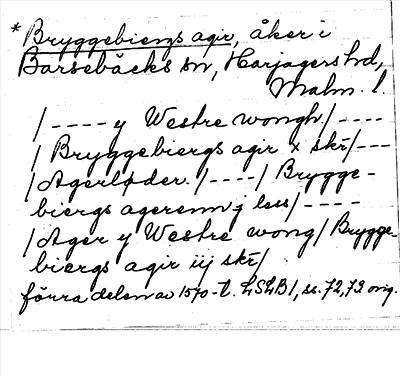 * Bryggebiergs agir, åker i
Barsebäcks sn, Harjagers hd,
Malm. l.
/ ---- y Westre wongh / ----
/ Bryggebiergs agir x skr / ---
/ Agerløder. / ---- / Brygge-
biergs agerenn j less / ----
/ Ager y Westre wong / Brygge-
biergs agir iij skr /
förra delen av 1570-t. LSLB 1, ss. 72, 73 orig.